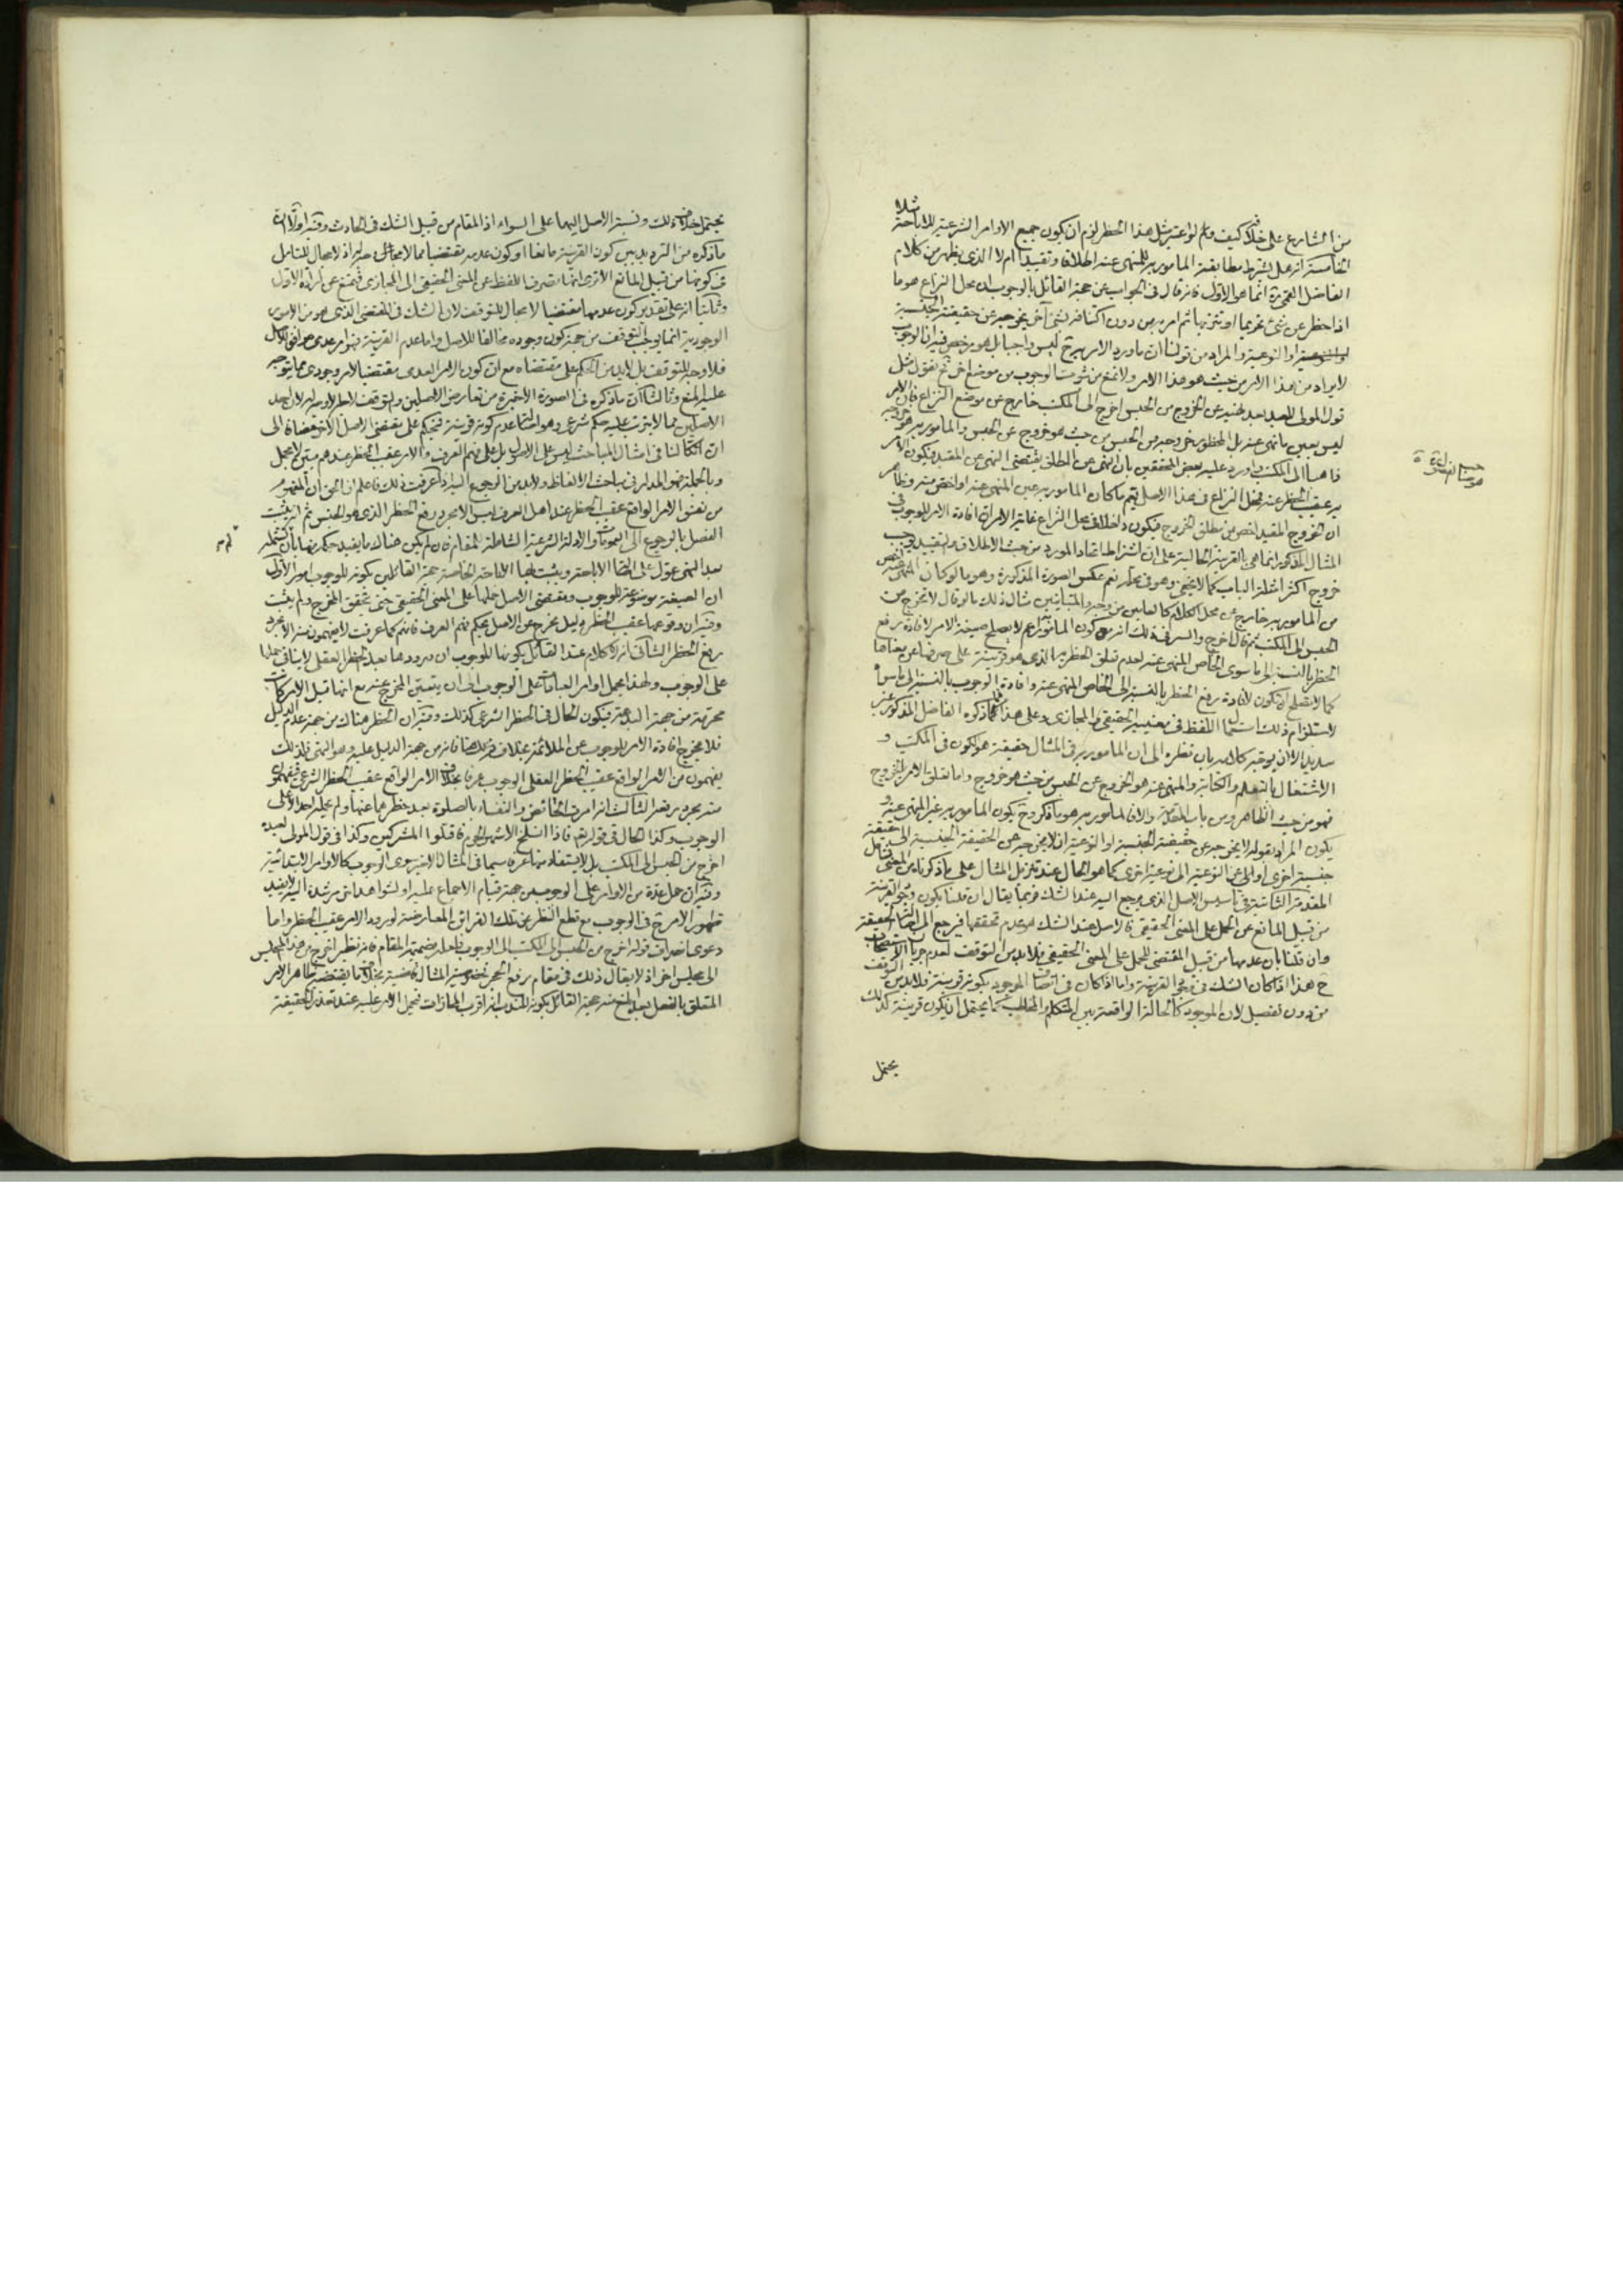 من الشارع على خلافه كيف ولو اعتبر مثل هذا الحظر لزم ان يكون جميع الاوامر الشرعية للاباحة
الخامسة انه هل يشترط مطابقة المامور به للمنهى عنه اطلاقا وتقييدا ام لا الذى يظهر من كلام
الفاضل انما هو الاول فانه قال فى الجواب عن حجة القائل بالوجوب ان محل النزاع هو ما
اذا حظر عن شئ تحريما او تنزيها ثم امر به من دون اكتنافه بشئ آخر يخرجه عن حقيقته الجنسية
او النوعية والمراد من قولنا ان ما ورد الامر به ح ليس واجبا بل هو مرخص فيه ان الوجوب
لا يراد من هذا الامر من حيث هو هذا الامر ولا نمنع من ثبوت الوجوب من موضع اخر ثم نقول مثل
قول المولى للعبد بعد نهيه عن الخروج من الحبس اخرج الى المكتب خارج عن موضع النزاع فان الامر
ليس بعين ما نهى عنه بل المحظور خروجه من الحبس من حيث هو خروج عن الحبس والمامور به هو خروجه
ذاهبا الى المكتب واورد عليه بعض المحققين بان النهى عن المطلق يقتضى النهى عن المقيد فيكون الامر
به عقيب الحظر عنه فمحل النزاع فى هذا الاصل يعم ما كان المامور به عين المنهى عنه او اخص منه وظاهر
ان الخروج المقيد اخص من مطلق الخروج فيكون داخلا فى محل النزاع غاية الامر ان افادة الامر الوجوب فى
المثال المذكور انما هى بالقرينة الحالية على ان اشتراط اتحاد المورد من حيث الاطلاق والتقييد يوجب
خروج اكثر امثلة الباب كما لا يخفى وهو فى محله نعم عكس الصورة المذكورة وهو ما لو كان المنهى عنه اخص
من المامور به خارج عن محل الكلام كالعامين من وجه والمتباينين مثال ذلك ما لو قال لا تخرج من
الحبس الى المكتب ثم قال اخرج والسر فى ذلك انه مع كون المامور به اعم لا يصلح صيغة الامر لافادة رفع
الحظر بالنسبة الى ما سوى الخاص المنهى عنه لعدم تعلق الحظر به الذى هو قرينة على صرفها عن معناها
كما لا تصلح ان تكون لافادة رفع الحظر بالنسبة الى الخاص المنهى عنه وافادة الوجوب بالنسبة الى ما سواه
لاستلزام ذلك استعمال اللفظ فى معنييه الحقيقى والمجازى وعلى هذا فما ذكره الفاضل المذكور غير
سديد الا ان يوجه كلامه بان نظره الى ان المامور به فى المثال حقيقة هو الكون فى المكتب و
الاشتغال بالتعلم والكتابة والمنهى عنه هو الخروج عن الحبس من حيث هو خروج واما تعلق الامر بالخروج
فهو من حيث الظاهر ومن باب المقدمة والا فالمامور به هو ما ذكر وح يكون المامور به غير المنهى عنه و
يكون المراد بقوله لا يخرجه عن حقيقته الجنسية او النوعية ان لا يخرجه عن الحقيقة الجنسية الى حقيقة
جنسية اخرى او الى عن النوعية الى نوعية اخرى كما هو الحال عند تنزيل المثال على ما ذكرناه من المعنى فتامل
المقدمة الثانية فى تاسيس الاصل الذى يرجع اليه عند الشك فربما يقال ان قلنا بكون وجود القرينة
من قبيل المانع عن الحمل على المعنى الحقيقى فالاصل عند الشك هو عدم تحققها فيرجع الى اصالة الحقيقة
وان قلنا بان عدمها من قبيل المقتضى للحمل على المعنى الحقيقى فلا بد من التوقف لعدم جريان الاستصحاب
ح هذا اذا كان الشك فى وجود القرينة واما اذا كان فى اتصاف الموجود بكونه قرينة فلا بد من التوقف
من دون تفصيل لان الموجود كالحالة الواقعة بين المتكلم والمخاطب كما يحتمل ان يكون قرينة كذلك
يحتمل
يحتمل خلاف ذلك ونسبة الاصل اليهما على السواء اذ المقام من قبيل الشك فى الحادث وفيه اولا ان
ما ذكره من الترديد بين كون القرينة مانعا او كون عدمها مقتضيا مما لا مجال له اذ لا مجال للتامل
فى كونها من قبيل المانع الا ترى انها تصرف اللفظ عن المعنى الحقيقى الى المجازى فتمنع عن ارادة الاول
وثانيا انه على تقدير كون عدمها مقتضيا لا مجال للتوقف لان الشك فى المقتضى الذى هو من الامور
الوجودية انما يوجب التوقف من جهة كون وجوده مخالفا للاصل واما عدم القرينة فهو امر عدمى موافق للاصل
فلا وجه للتوقف بل لا بد من الحكم على مقتضاه مع ان كون الامر العدمى مقتضيا لامر وجودى مما يتوجه
عليه المنع وثالثا ان ما ذكره فى الصورة الاخيرة من تعارض الاصلين والتوقف لا وجه له لان احد
الاصلين مما لا يترتب عليه حكم شرعى وهو اصالة عدم كونه قرينة فيحكم على مقتضى الاصل الاخر مضافا الى
ان اتكالنا فى امثال المباحث ليس على الاصول بل على فهم العرف والامر عقيب الحظر عندهم مبين لا مجمل
وبالجملة فهو المدار فى مباحث الالفاظ ولا بد من الرجوع اليه اذا عرفت ذلك فاعلم ان الحق ان المفهوم
من نفس الامر الواقع عقيب الحظر عند اهل العرف ليس الا مجرد رفع الحظر الذى هو الجنس ثم انه يثبت
الفصل بالرجوع الى العمومات والادلة الشرعية الشاملة للمقام فان لم يكن هناك ما يفيد حكمه
بعد النهى عول على اصالة الاباحة ويثبت بها الاباحة الخاصة حجة القائلين بكونه للوجوب امور الاول
ان الصيغة موضوعة للوجوب ومقتضى الاصل حملها على المعنى الحقيقى حتى يتحقق المخرج ولم يثبت
وفيه ان وقوعها عقيب الحظر دليل مخرج عن الاصل بحكم فهم العرف فانهم كما عرفت لا يفهمون منه الا مجرد
رفع الحظر الثانى انه لا كلام عند القائل بكونها للوجوب ان ورودها بعد الحظر العقلى لا ينافى حملها
على الوجوب ولهذا يحمل اوامر العبادات على الوجوب الى ان يتبين المخرج عنه مع انها قبل الامر كانت
محرمة من جهة البدعة فيكون الحال فى الحظر الشرعى كذلك وفيه ان الحظر هناك من جهة عدم الدليل
فلا يخرج افادة الامر للوجوب عن الملائمة بخلافه هنا فانه من جهة الدليل عليه وهو النهى فلذلك
يفهمون من الامر الواقع عقيب الحظر العقلى الوجوب عرفا بخلاف الامر الواقع عقيب الحظر الشرعى فيفهمون
منه مجرد رفعه الثالث انه امرت الحائض والنفساء بالصلوة بعد حظرهما عنها ولم يحمله احد الا على
الوجوب وكذا الحال فى قوله تع فاذا انسلخ الاشهر الحرم فاقتلوا المشركين وكذا فى قول المولى لعبده
اخرج من الحبس الى المكتب بل لا يستفاد منها عرفا سيما فى المثال الاخير سوى الوجوب كالاوامر الابتدائية
وفيه ان حمل عدة من الاوامر على الوجوب من جهة قيام الاجماع عليه او لشواهد اخر مرشدة اليه لا يفيد
ظهور الامر ح فى الوجوب مع قطع النظر عن تلك القرائن المعارضة لورود الامر عقيب الحظر واما
دعوى انصراف قوله اخرج من الحبس الى المكتب الى الوجوب فلعله بضميمة المقام فانه نظير اخرج من هذا المجلس
الى مجلس اخر اذ لا يقال ذلك فى مقام رفع الحجر فخصوصية المثال قاضية بخلاف ما يقتضيه ظاهر الامر
المتعلق بالفعل بعد المنع منه حجة القائل بكونه للندب انه اقرب المجازات فيحمل الامر عليه عند تعذر الحقيقة